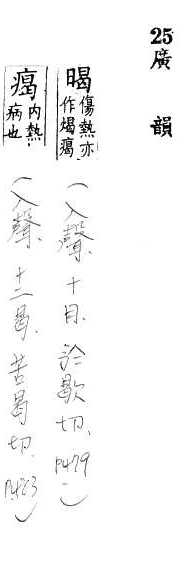 25 廣韻
暍 傷熱亦作𤸎
(入聲、十月、於歇切、P479。)
𤸎 内熱病也
(入聲、十二曷、苦曷切、P.483)